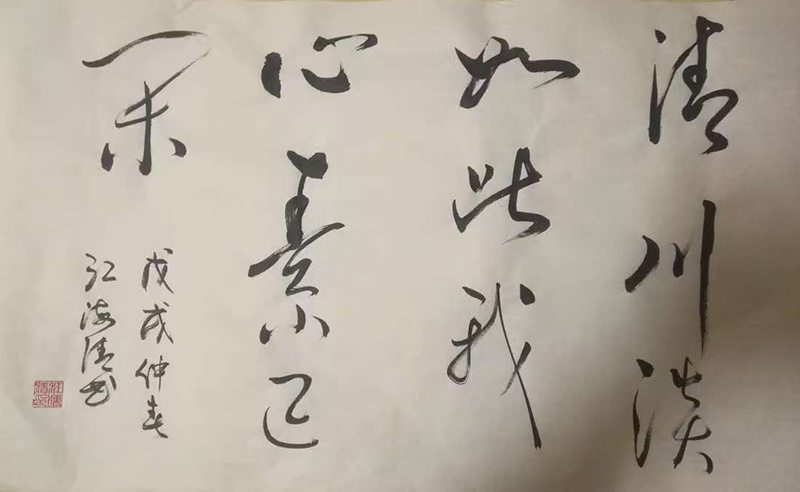 清川淡
如此我
心素已
闲
戊戌仲春
江海清书